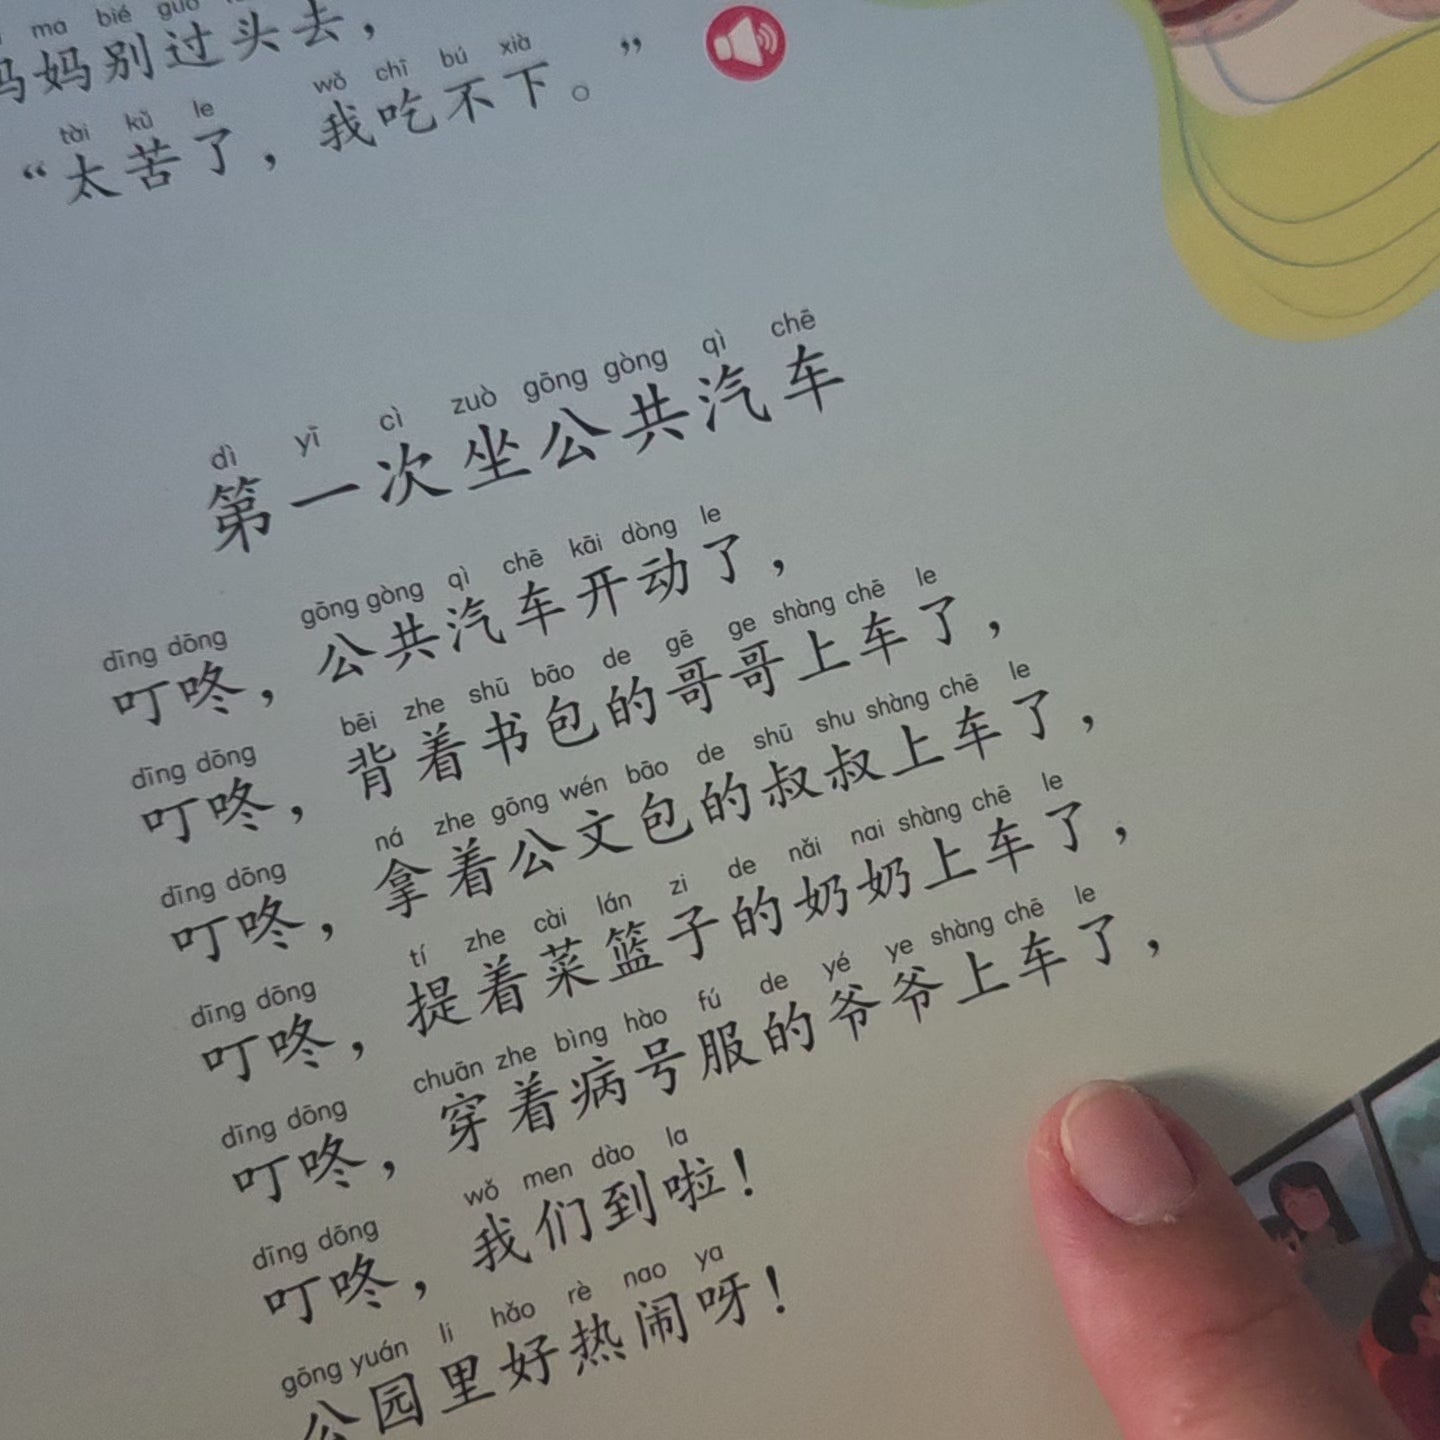 ma bié guò
妈妈别过头去，
tài kǔ le wǒ chī bú xià
“太苦了，我吃不下。”
dì yī cì zuò gōng gòng qì chē
第一次坐公共汽车
dīng dōng gōng gòng qì chē kāi dòng le
叮咚，公共汽车开动了，
dīng dōng bēi zhe shū bāo de gē ge shàng chē le
叮咚，背着书包的哥哥上车了，
dīng dōng ná zhe gōng wén bāo de shū shu shàng chē le
叮咚，拿着公文包的叔叔上车了，
dīng dōng tí zhe cài lán zi de nǎi nai shàng chē le
叮咚，提着菜篮子的奶奶上车了，
dīng dōng chuān zhe bìng hào fú de yé ye shàng chē le
叮咚，穿着病号服的爷爷上车了，
dīng dōng wǒ men dào la
叮咚，我们到啦！
gōng yuán li hǎo rè nao ya
公园里好热闹呀！